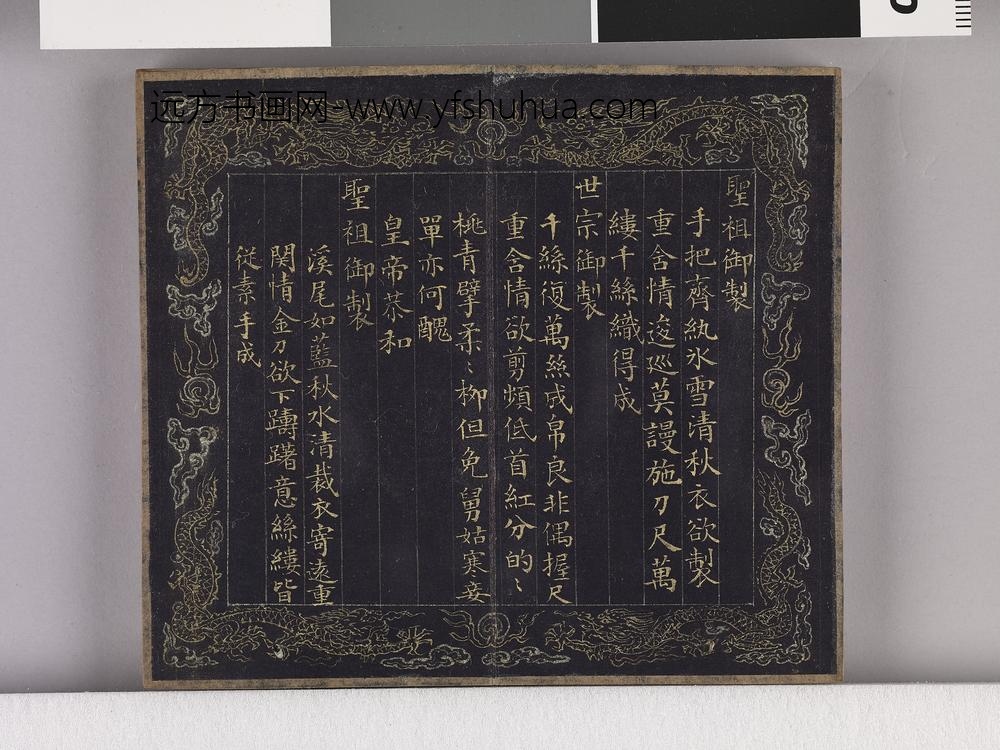 远方书画网-www.yfshuhua.com
聖祖御製
手把齊紈氷雪清秋衣欲製
重舍情逡廵莫謾施刀尺萬
縷千絲織得成
世宗御製
千絲復萬絲成帛良非偶握尺
重含情欲剪頻低首紅分的〻
桃青擘柔〻柳但免舅姑寒妾
單亦何醜
皇帝恭和
聖祖御製
溪尾如藍秋水清裁衣寄遠重
関情金刀欲下躊躇意絲縷皆
従素手成